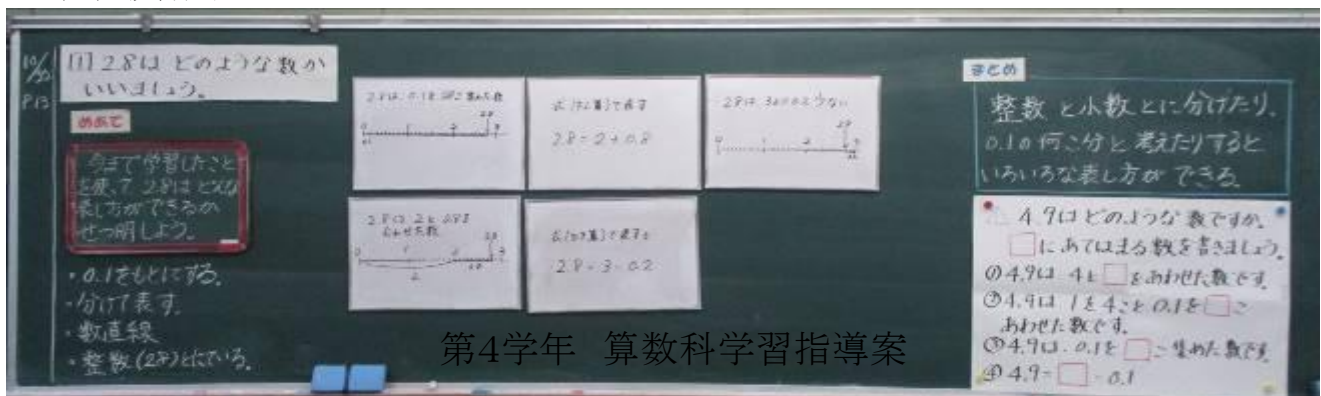 10/30
P13
[1] 2.8は どのような数か
いいましょう。
めあて
今まで学習したこと
を使って 2.8は どんな
表し方ができるか
せつ明しよう。
・0.1をもとにする。
・分けて表す。
・数直線
・整数(2や3)とにている。
2.8は、0.1を28こ集めた数
0 1 2 2.8 3
0.1
式(たし算)で表す
2.8=2+0.8
2.8は、3より0.2少ない
0 1 2 2.8 3
0.2
2.8は、2と0.8を
あわせた数
0 1 2 2.8 3
2 0.8
式(ひき算)で表すと
2.8=3-0.2
第4学年 算数科学習指導案
まとめ
整数と小数とに分けたり、
0.1の何こ分と考えたりすると
いろいろな表し方ができる。
4.9はどのような数ですか。
□にあてはまる数を書きましょう。
①4.9は 4と□をあわせた数です。
②4.9は 1を4こと0.1を□こ
あわせた数です。
③4.9は、0.1を□こ集めた数です。
④4.9=□-0.1